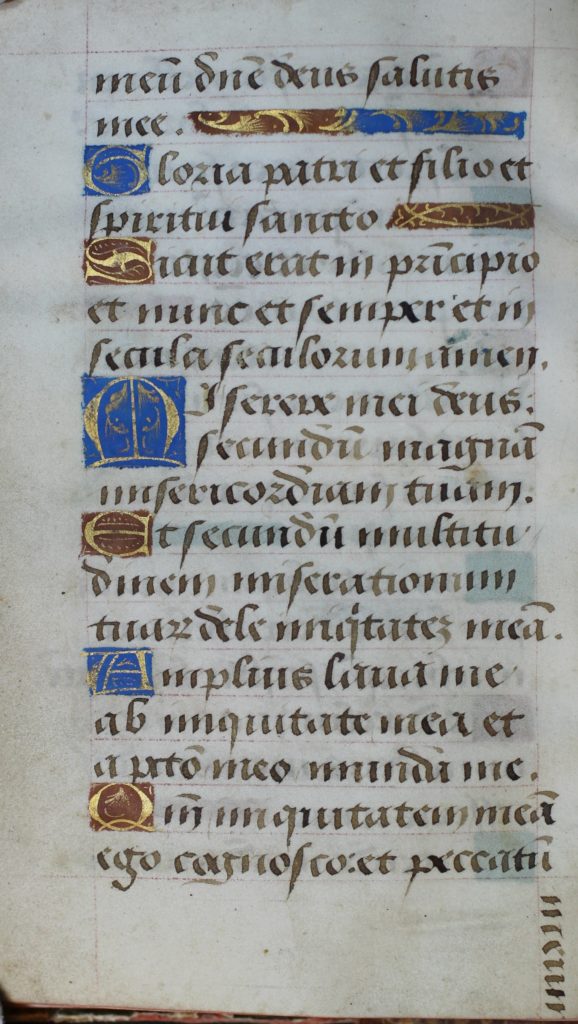 meū dn̄e deus salutis
mee.
Gloria patri et filio et
spiritui sancto
Sicut erat in prīcipio
et nunc et semper et in
secula seculorum amen.
Miserere mei deus:
secundū magnā
misericordiam tuam.
Et secundū multitu
dinem miserationum
tuaꝝ dele iniq̇tatez meā.
Amplius laua me
ab iniquitate mea et
a pctō meo munda me.
Qm̄ iniquitatem meā
ego cognosco: et peccatū
meum